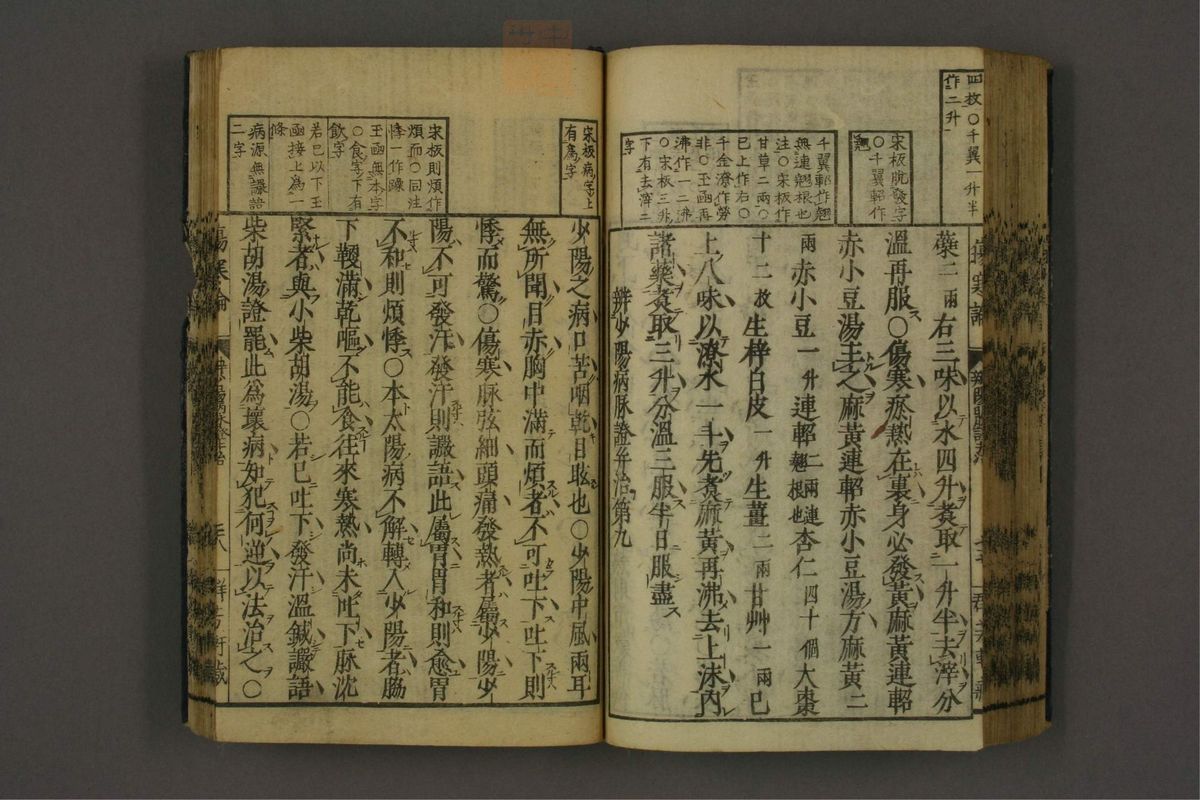 四枚○千翼一升半
作二升
宋板脫發字
○千翼軺作
翹
千翼軺作翹
無連翹根也
注○宋板作
甘草二兩○
已上作右○
千金潦作勞
非○玉函再
沸作一二沸
○宋板三升
下有去滓二
字
傷寒論
蘖二兩右三味以水四升煑取一升半去滓分
溫再服○傷寒瘀熱在裏身必發黃麻黃連軺
赤小豆湯主之麻黃連軺赤小豆湯方麻黃二
兩赤小豆一升連軺二兩連翹根也杏仁四十個大棗
十二枚生梓白皮一升生薑二兩甘艸一兩已
上八味以潦水一斗先煑麻黃再沸去上沫內
諸藥煑取三升分溫三服半日服盡
辨少陽病脉證并治第九
宋板病字上
有爲字
宋板則煩作
煩而○同注
悸一作躁
玉函無本字
○食字下有
飲字
若已以下玉
函接上爲一
條
病源無譫語
二字
少陽之病口苦咽乾目眩也○少陽中風兩耳
無所聞目赤胸中滿而煩者不可吐下吐下則
悸而驚○傷寒脉弦細頭痛發熱者屬少陽少
陽不可發汗發汗則譫語此屬胃胃和則愈胃
不和則煩悸○本太陽病不解轉入少陽者脇
下鞕滿乾嘔不能食往來寒熱尚未吐下脉沈
緊者與小柴胡湯○若已吐下發汗溫鍼譫語
柴胡湯證罷此爲壞病知犯何逆以法治之○
傷寒論